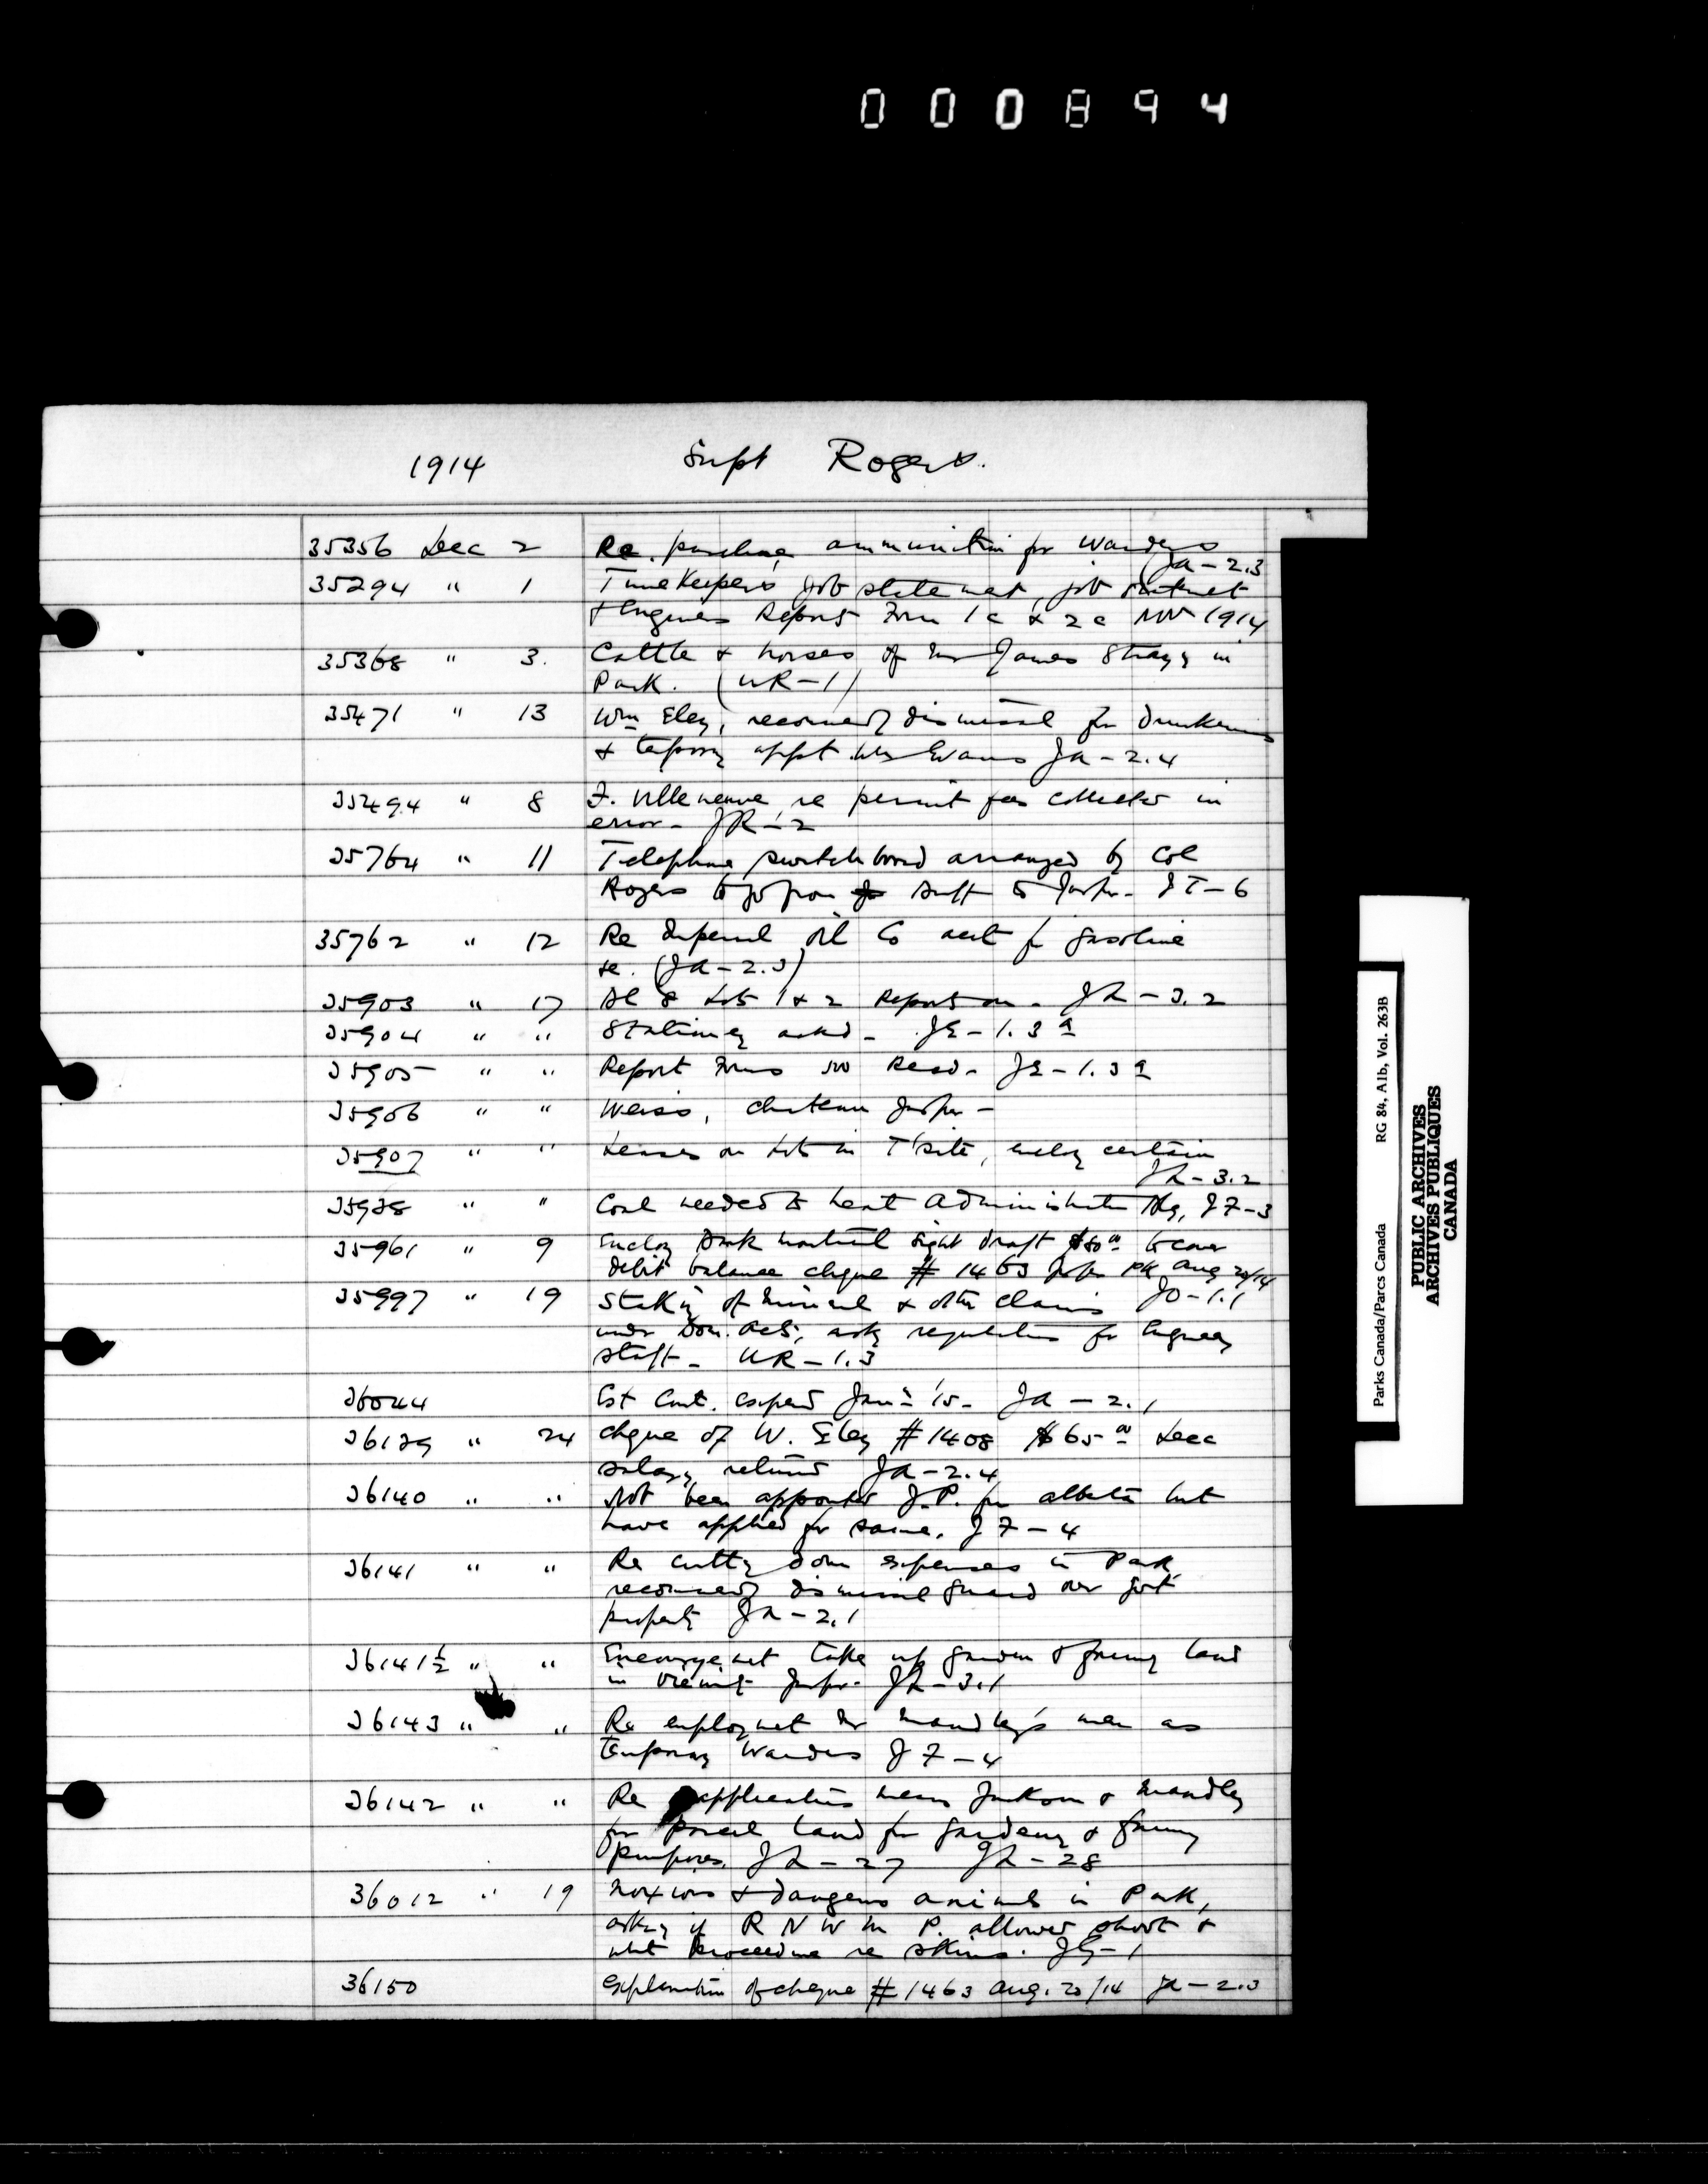 000894
1914 Supt Rogers.
35356 Dec 2 Re. purchase ammunition for Wardens
Ja-2.3
35294 " 1 TimeKeeper's job statement, job contract
& Engineers Report Form 1c & 2c Nov 1914
35368 " 3. Cattle & horses of Mr James Stray in
Park. (UR-1)
35471 " 13 Wm Eley, recommend dismissal for Drunkenness
& tempory appt. Evans Ja-2.4
35494 " 8 F. Villeneuve re permit fees collected in
error- JR-2
35764 " 11 Telephone switchboard arranged by Col
Rogers to go from to Jasper- JT-6
35762 " 12 Re Imperial Oil Co acct for gasoline
(Ja-2.3)
35903 " 17 Bl 8 Lots 1 & 2 Report on- JL-3.2
35904 " " Stationery asked- JE-1.3a
35905 " " Report Forms Recd- JE-1.3a
35906 " " Weiss, chateau Jasper-
35907 " " Leases on Lots in T'site, enclog certain
JL-3.2
35938 " " Coal needed to heat Administration Bldg, J7-3
35961 " 9 Enclog Bank Montreal sight draft to cover
debit balance cheque # 1463 Jasper Pk Aug 20/14
35997 " 19 Staking of Mineral & other claims JO-1.1
under Dom. Acts, ask regulations for Engineer
staff- UR-1.3
36044 Est Cont. expend Jan '15- Ja-2.1
36139 " 24 Cheque of W. Eley #1408 $65.00 Dec
salary returned Ja-2.4
36140 " " Not been appointed J.P. for Alberta but
have applied for same. J7-4
36141 " " Re cutting down expenses in Park
recommend dismissal guard over govt
property Ja-2.1
36141½ " " Encouragement take up garden & farming land
in vicinity Jasper- JL-3.1
36143 " " Re employment Mr Mandley's men as
Temporary Wardens J7-4
36142 " " Re applications Messrs Jackson & Mandley
for parcel land for gardening & farming
purposes. JL-27 JL-28
36012 " 19 Noxious & dangerous animals in Park,
asking if R N W M P. allowed shoot &
what proceedure re skins. JG-1
36150 Explanation of cheque #1463 Aug. 20/14 Ja-2.3
Parks Canada/Parcs Canada RG 84, A1b, Vol. 263B
PUBLIC ARCHIVES
ARCHIVES PUBLIQUES
CANADA